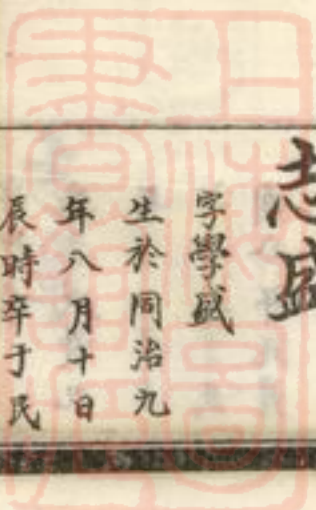 志盛
字學盛
生於同治九
年八月十日
辰時卒于民